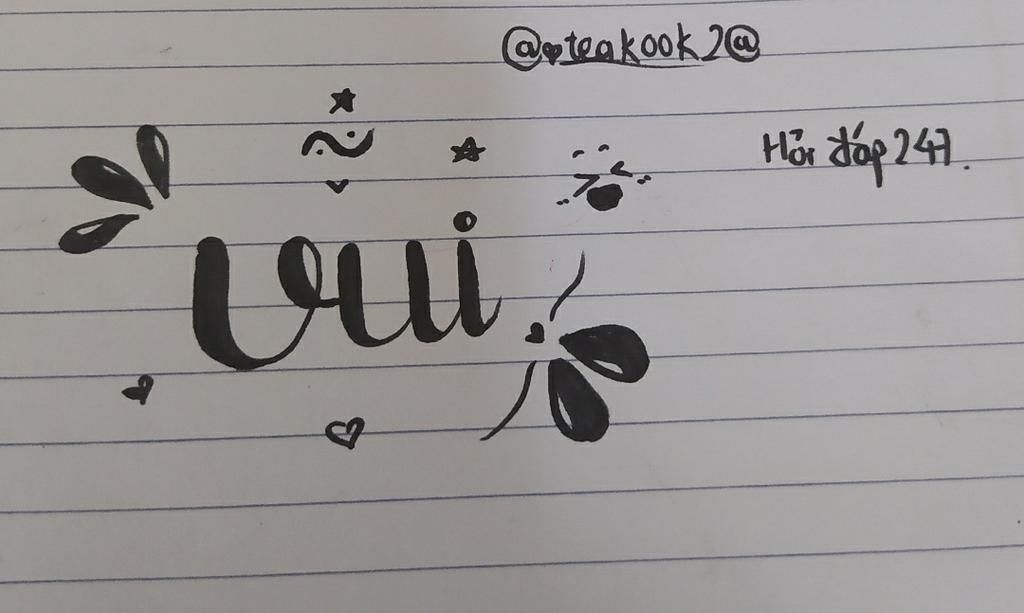 @♥teakook2@
Hỏi đáp 247.
vui